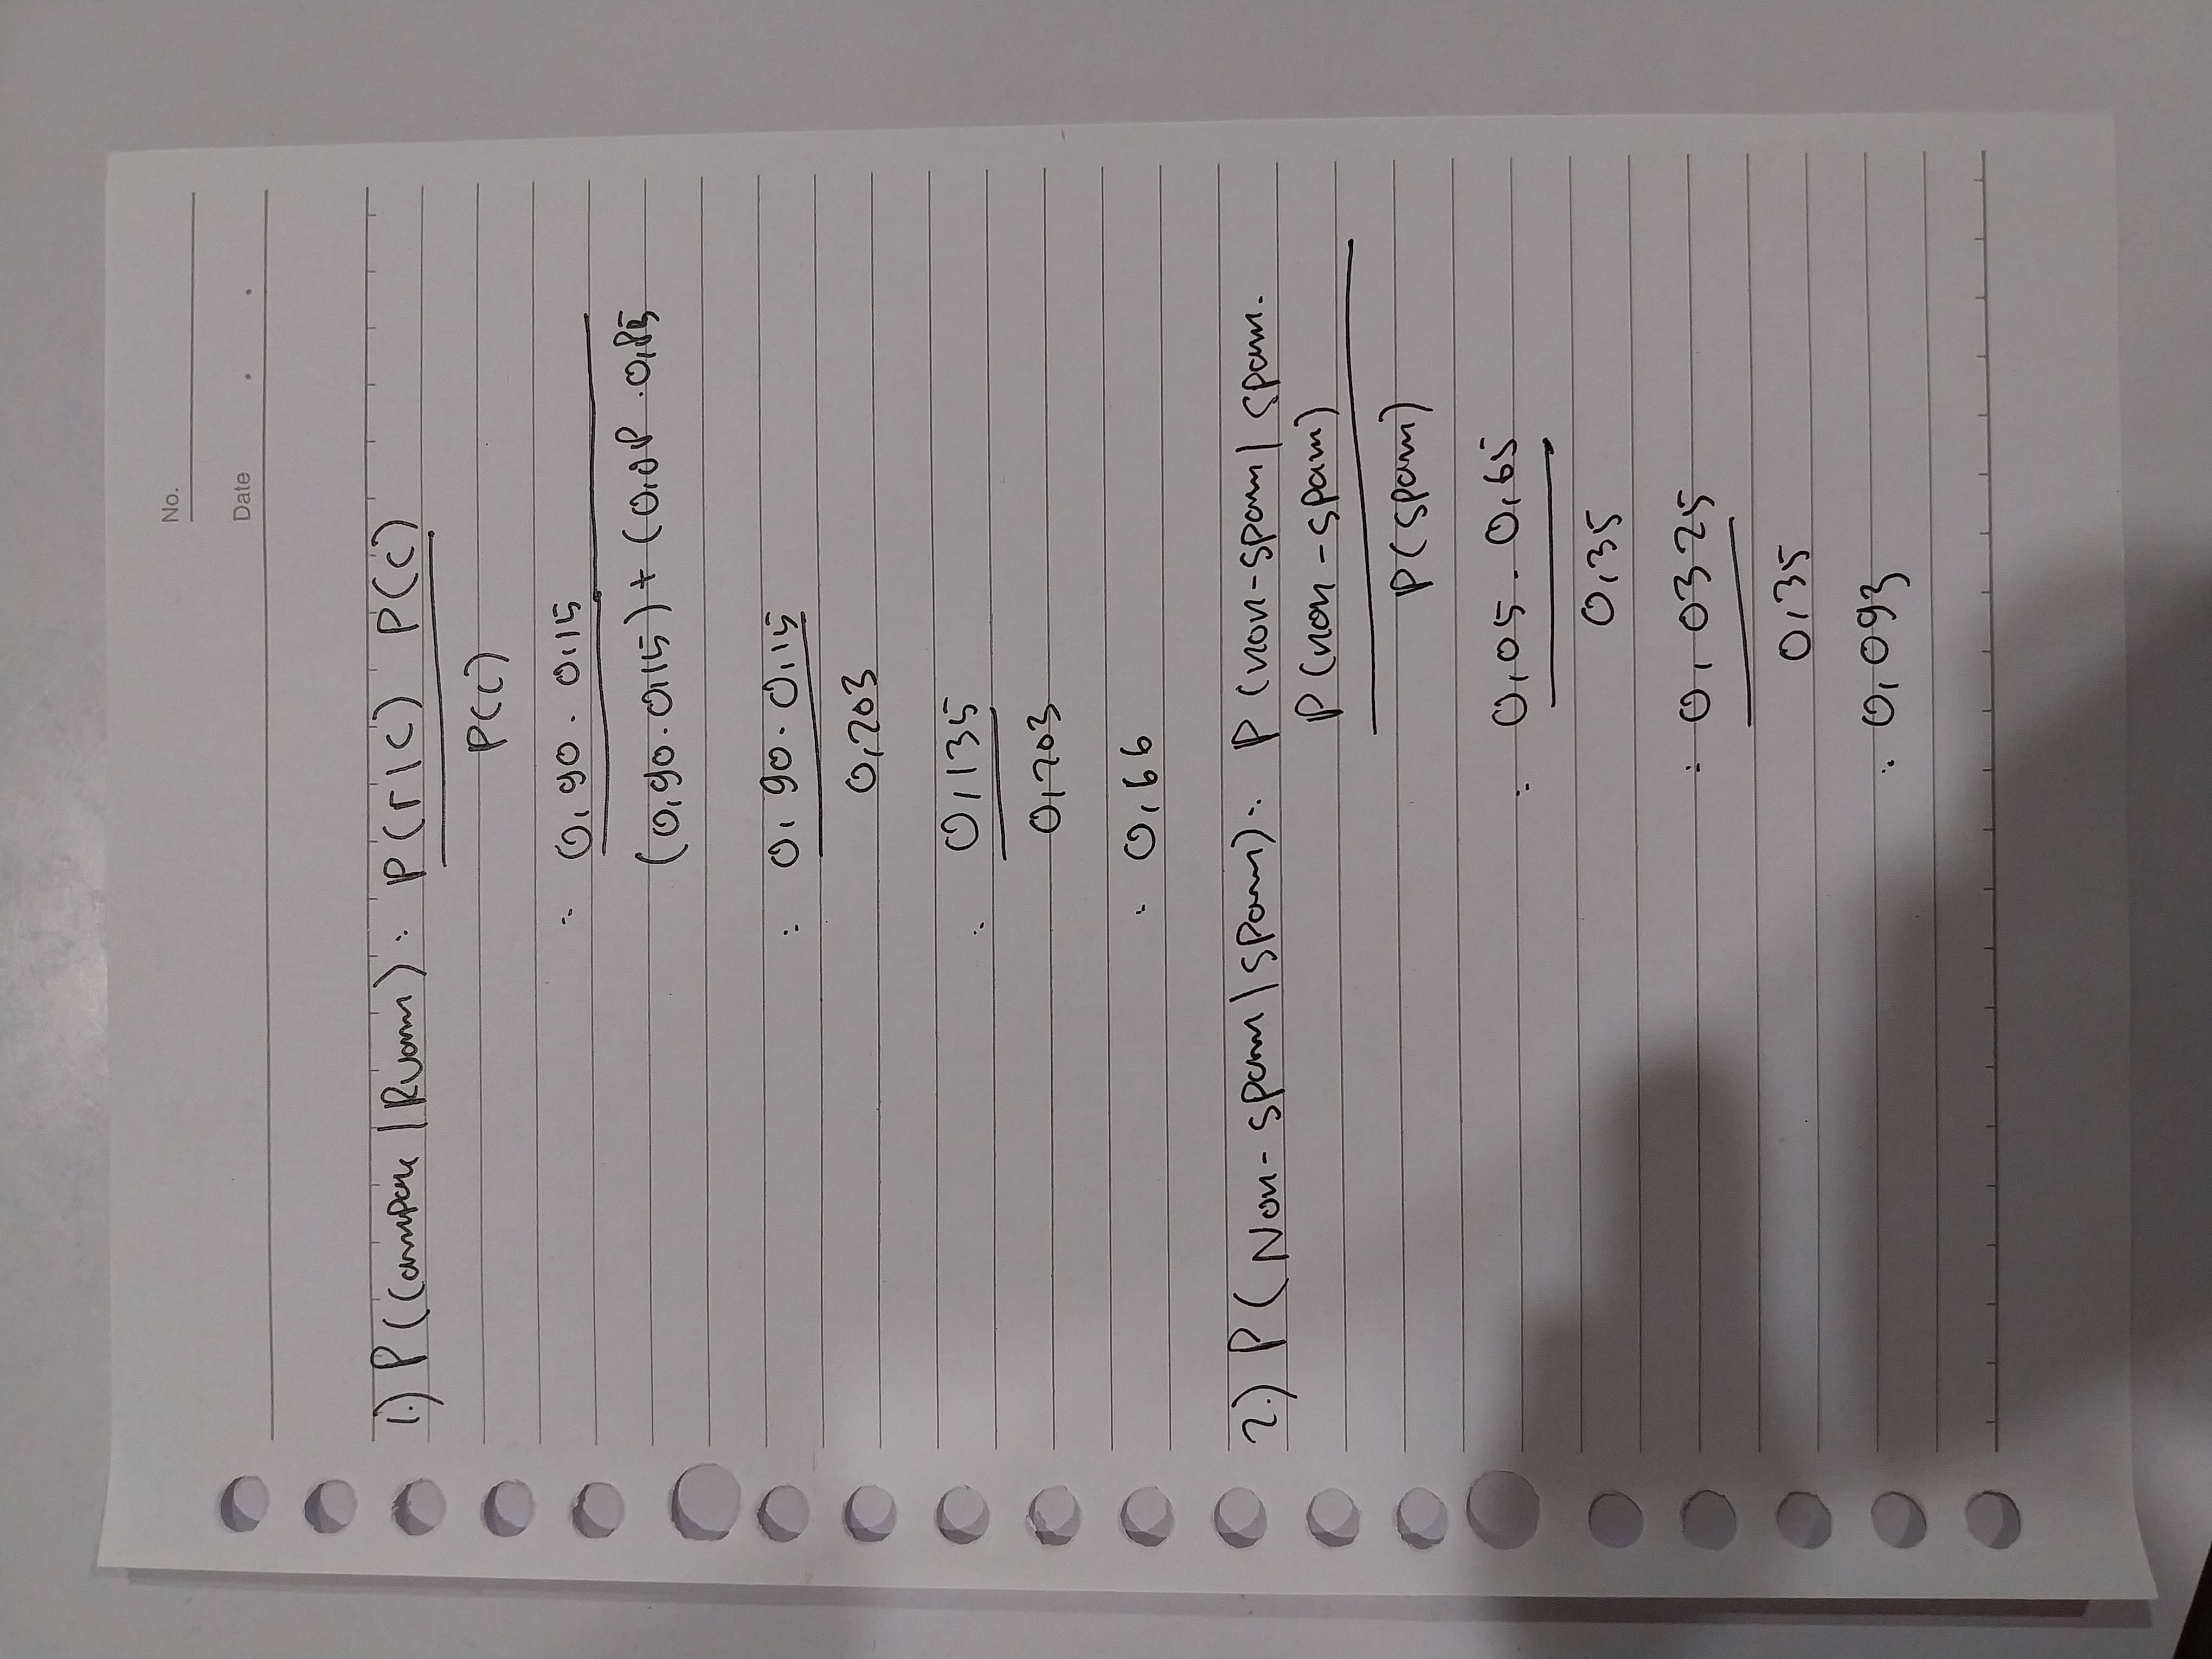 No.
Date . .
1.) P(Campak | Ruam) : P(r|c) P(c)
P(c)
: 0,90 . 0,15
(0,90 . 0,15) + (0,08 . 0,85
: 0,90 . 0,15
0,203
: 0,135
0,203
: 0,66
2.) P(Non-spam | spam) : P(non-spam | spam.
P(non-spam)
P(spam)
: 0,05 . 0,65
0,35
: 0,0325
0,35
: 0,093